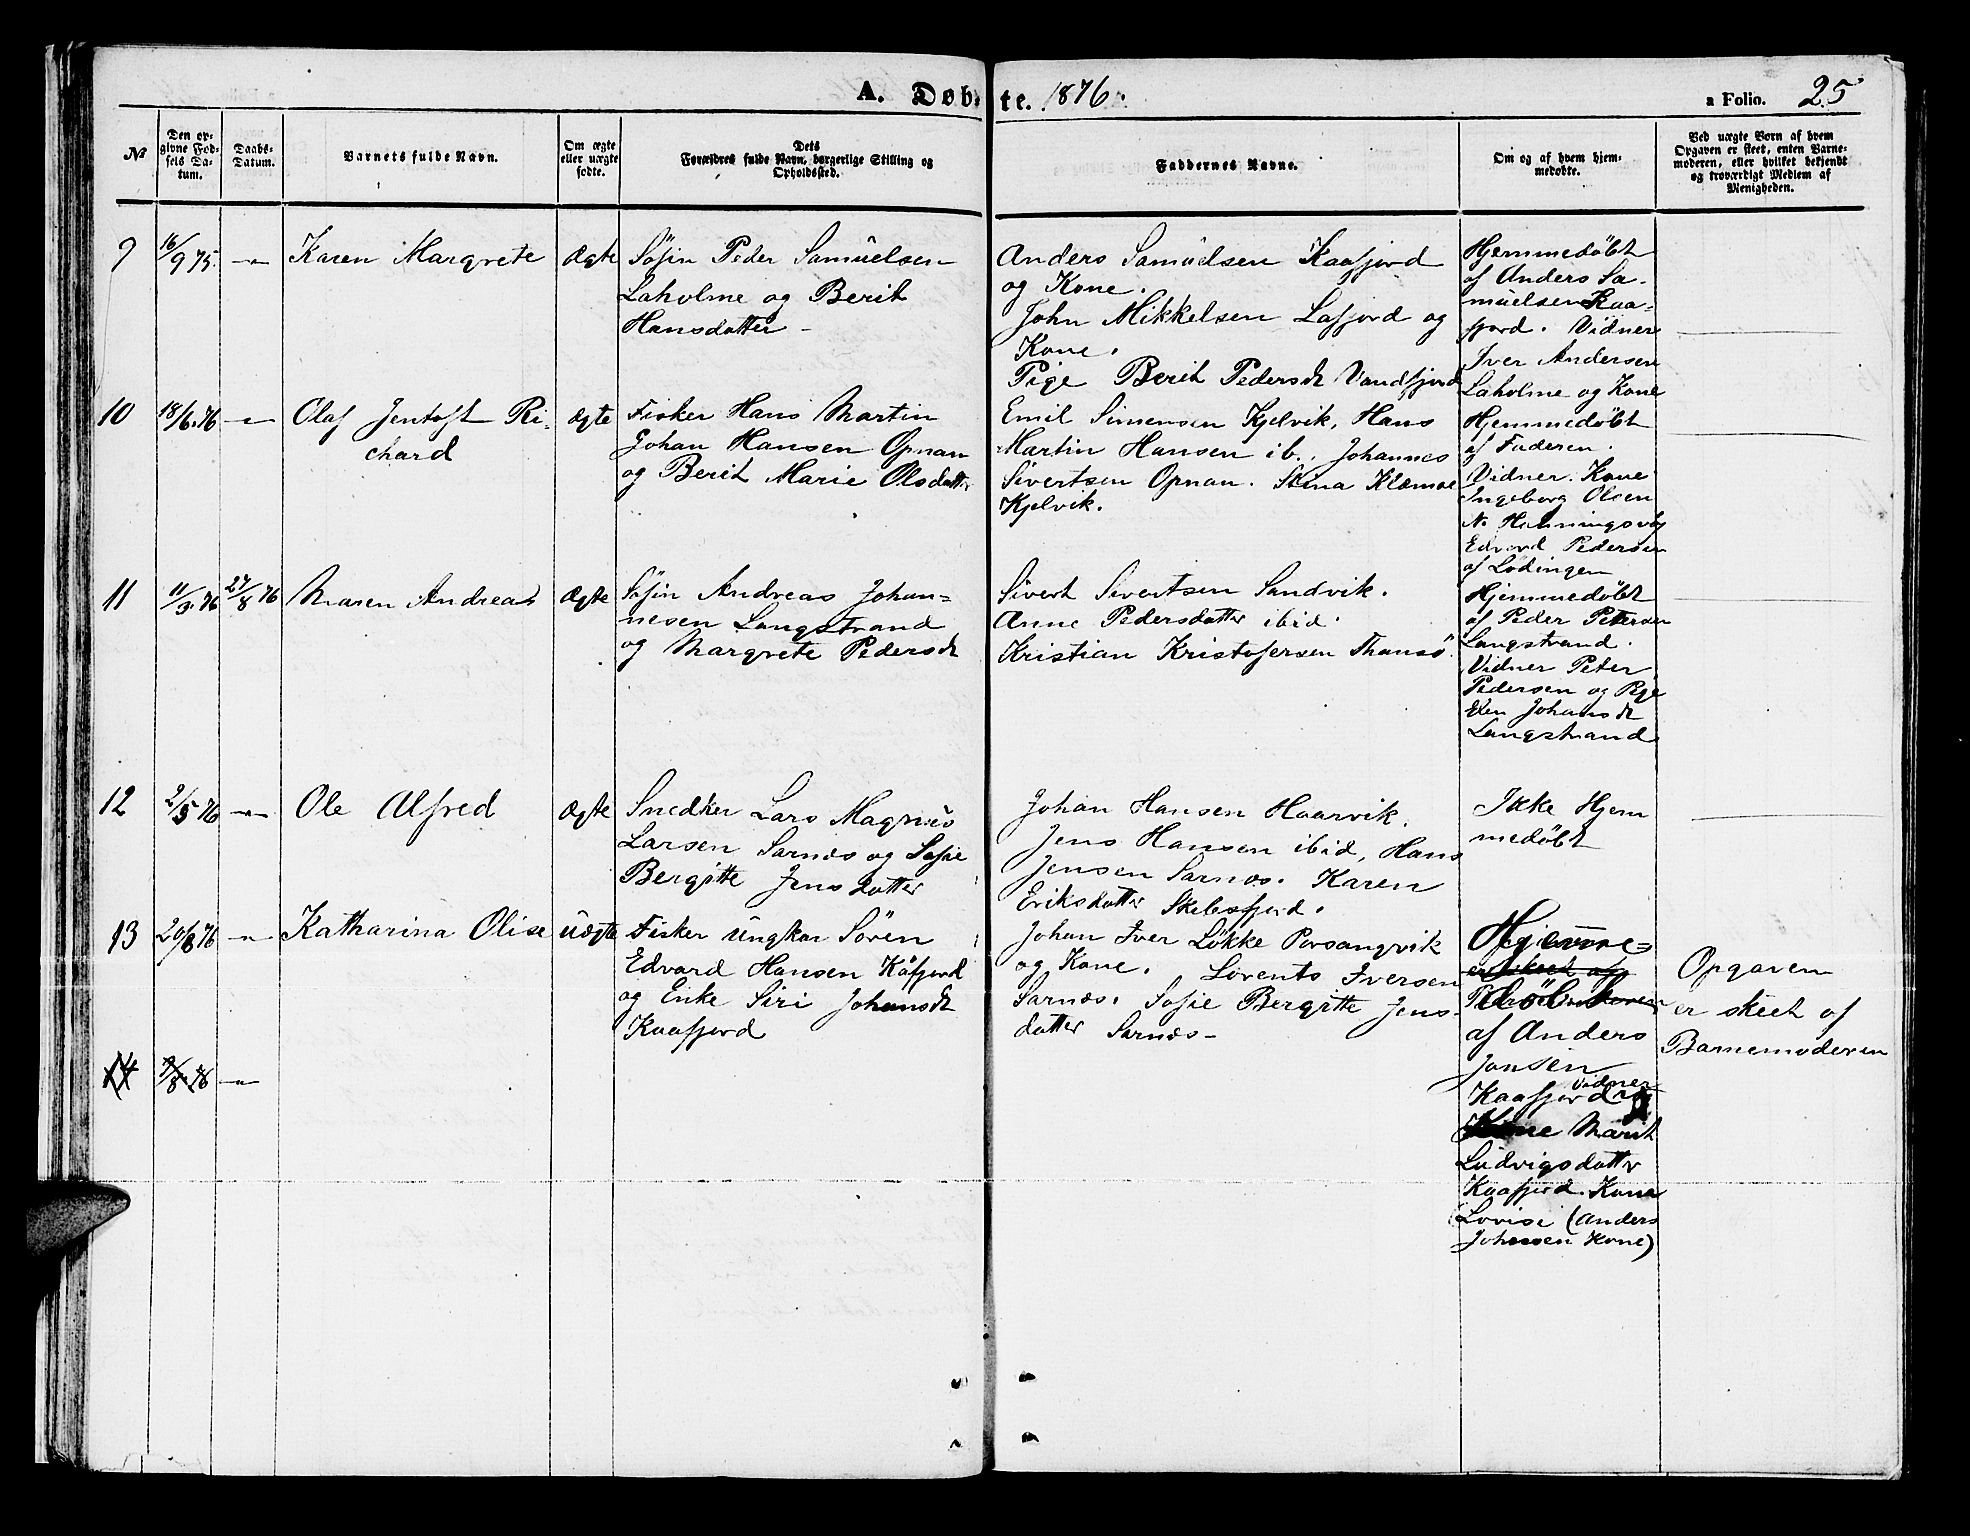 A. Døbte. 1876.
a Folio. 25
№
Den opgivne Fødsels Datum.
Daabs-Datum.
Barnets fulde Navn.
Om ægte eller uægte fødte.
Dets Forældres fulde Navn, borgerlige Stilling og Opholdssted.
Faddernes Navne.
Om og af hvem hjemmedøbte.
Ved uægte Børn af hvem Opgaven er skeet, enten Barnemoderen, eller hvilket bekjendt og troværdigt Medlem af Menigheden.
9
16/9 75.
—"—
Karen Margrete
Ægte
Søfin Peder Samuelsen
Laholme og Berit
Hansdatter –
Anders Samuelsen Kaafjord
og Kone.
John Mikkelsen Lafjord og
Kone.
Pige Berit Pedersdt Vandfjord
Hjemmedøbt
af Anders Sa-
muelsen Kaa-
fjord. Vidner
Iver Andersen
Laholme og Kone
10
18/6.76
—"—
Olaf Jentoft Ri-
chard
Ægte
Fisker Hans Martin
Johan Hansen Opnan
og Berit Marie Olsdatter
Emil Simensen Kjelvik, Hans
Martin Hansen ib., Johannes
Sivertsen Opnan. Stina
Kjelvik.
Hjemmedøbt
af Faderen.
Vidner. Kone
Ingeborg Olsen
N. Honningsvåg
Edvard Pedersen
af Lødingen
11
11/3.76
27/8 76
Maren Andrea
Ægte
Søfin Andreas Johan-
nesen Langstrand
og Margrete Pedersdt
Sivert Sivertsen Sandvik.
Anne Pedersdatter ibid.
Kristian Kristofersen
Hjemmedøbt
af Peder Petersen
Langstrand.
Vidner Peter
Pedersen og Pige
Elen Johansdt
Langstrand
12
2/5 76
—"—
Ole Alfred
Ægte
Snedker Lars Magnus
Larsen Sarnes og Sofie
Bergitte Jensdatter
Johan Hansen Haarvik.
Jens Hansen ibid, Hans
Jensen Sarnes. Karen
Eriksdatter Skibsfjord.
Ikke Hjem
medøbt
13
20/8 76
—"—
Katharina Olise
Uægte
Fisker Ungkar Søren
Edvard Hansen Kåfjord
og Enke Siri Johansdt
Kaafjord
Johan Iver Løkke Porsangvik
og Kone. Lorents Iversen
Sarnes. Sofie Bergitte Jens-
datter Sarnes –
Hjemme=
døbt
af Anders
Jansen
Vidner
Kaafjord
Marit
Ludvigsdatter
Kaafjord. Kone
Lovise (Anders
Johnsen Kone)
Opgaven
er skeet af
Barnemoderen
14
—"—